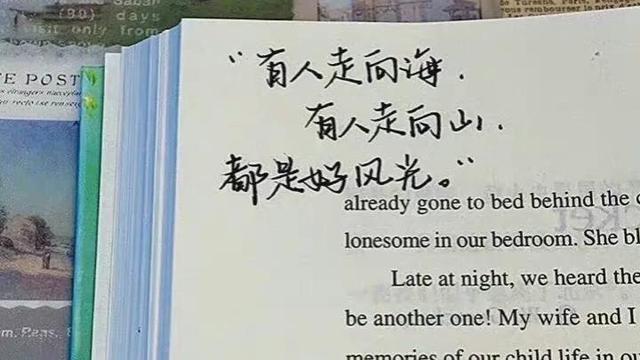 (90) days
visit only from
E POST
“有人走向海.
有人走向山.
都是好风光。”
already gone to bed behind the
lonesome in our bedroom. She bl
Late at night, we heard the
be another one! My wife and I
memories of our child life in ou